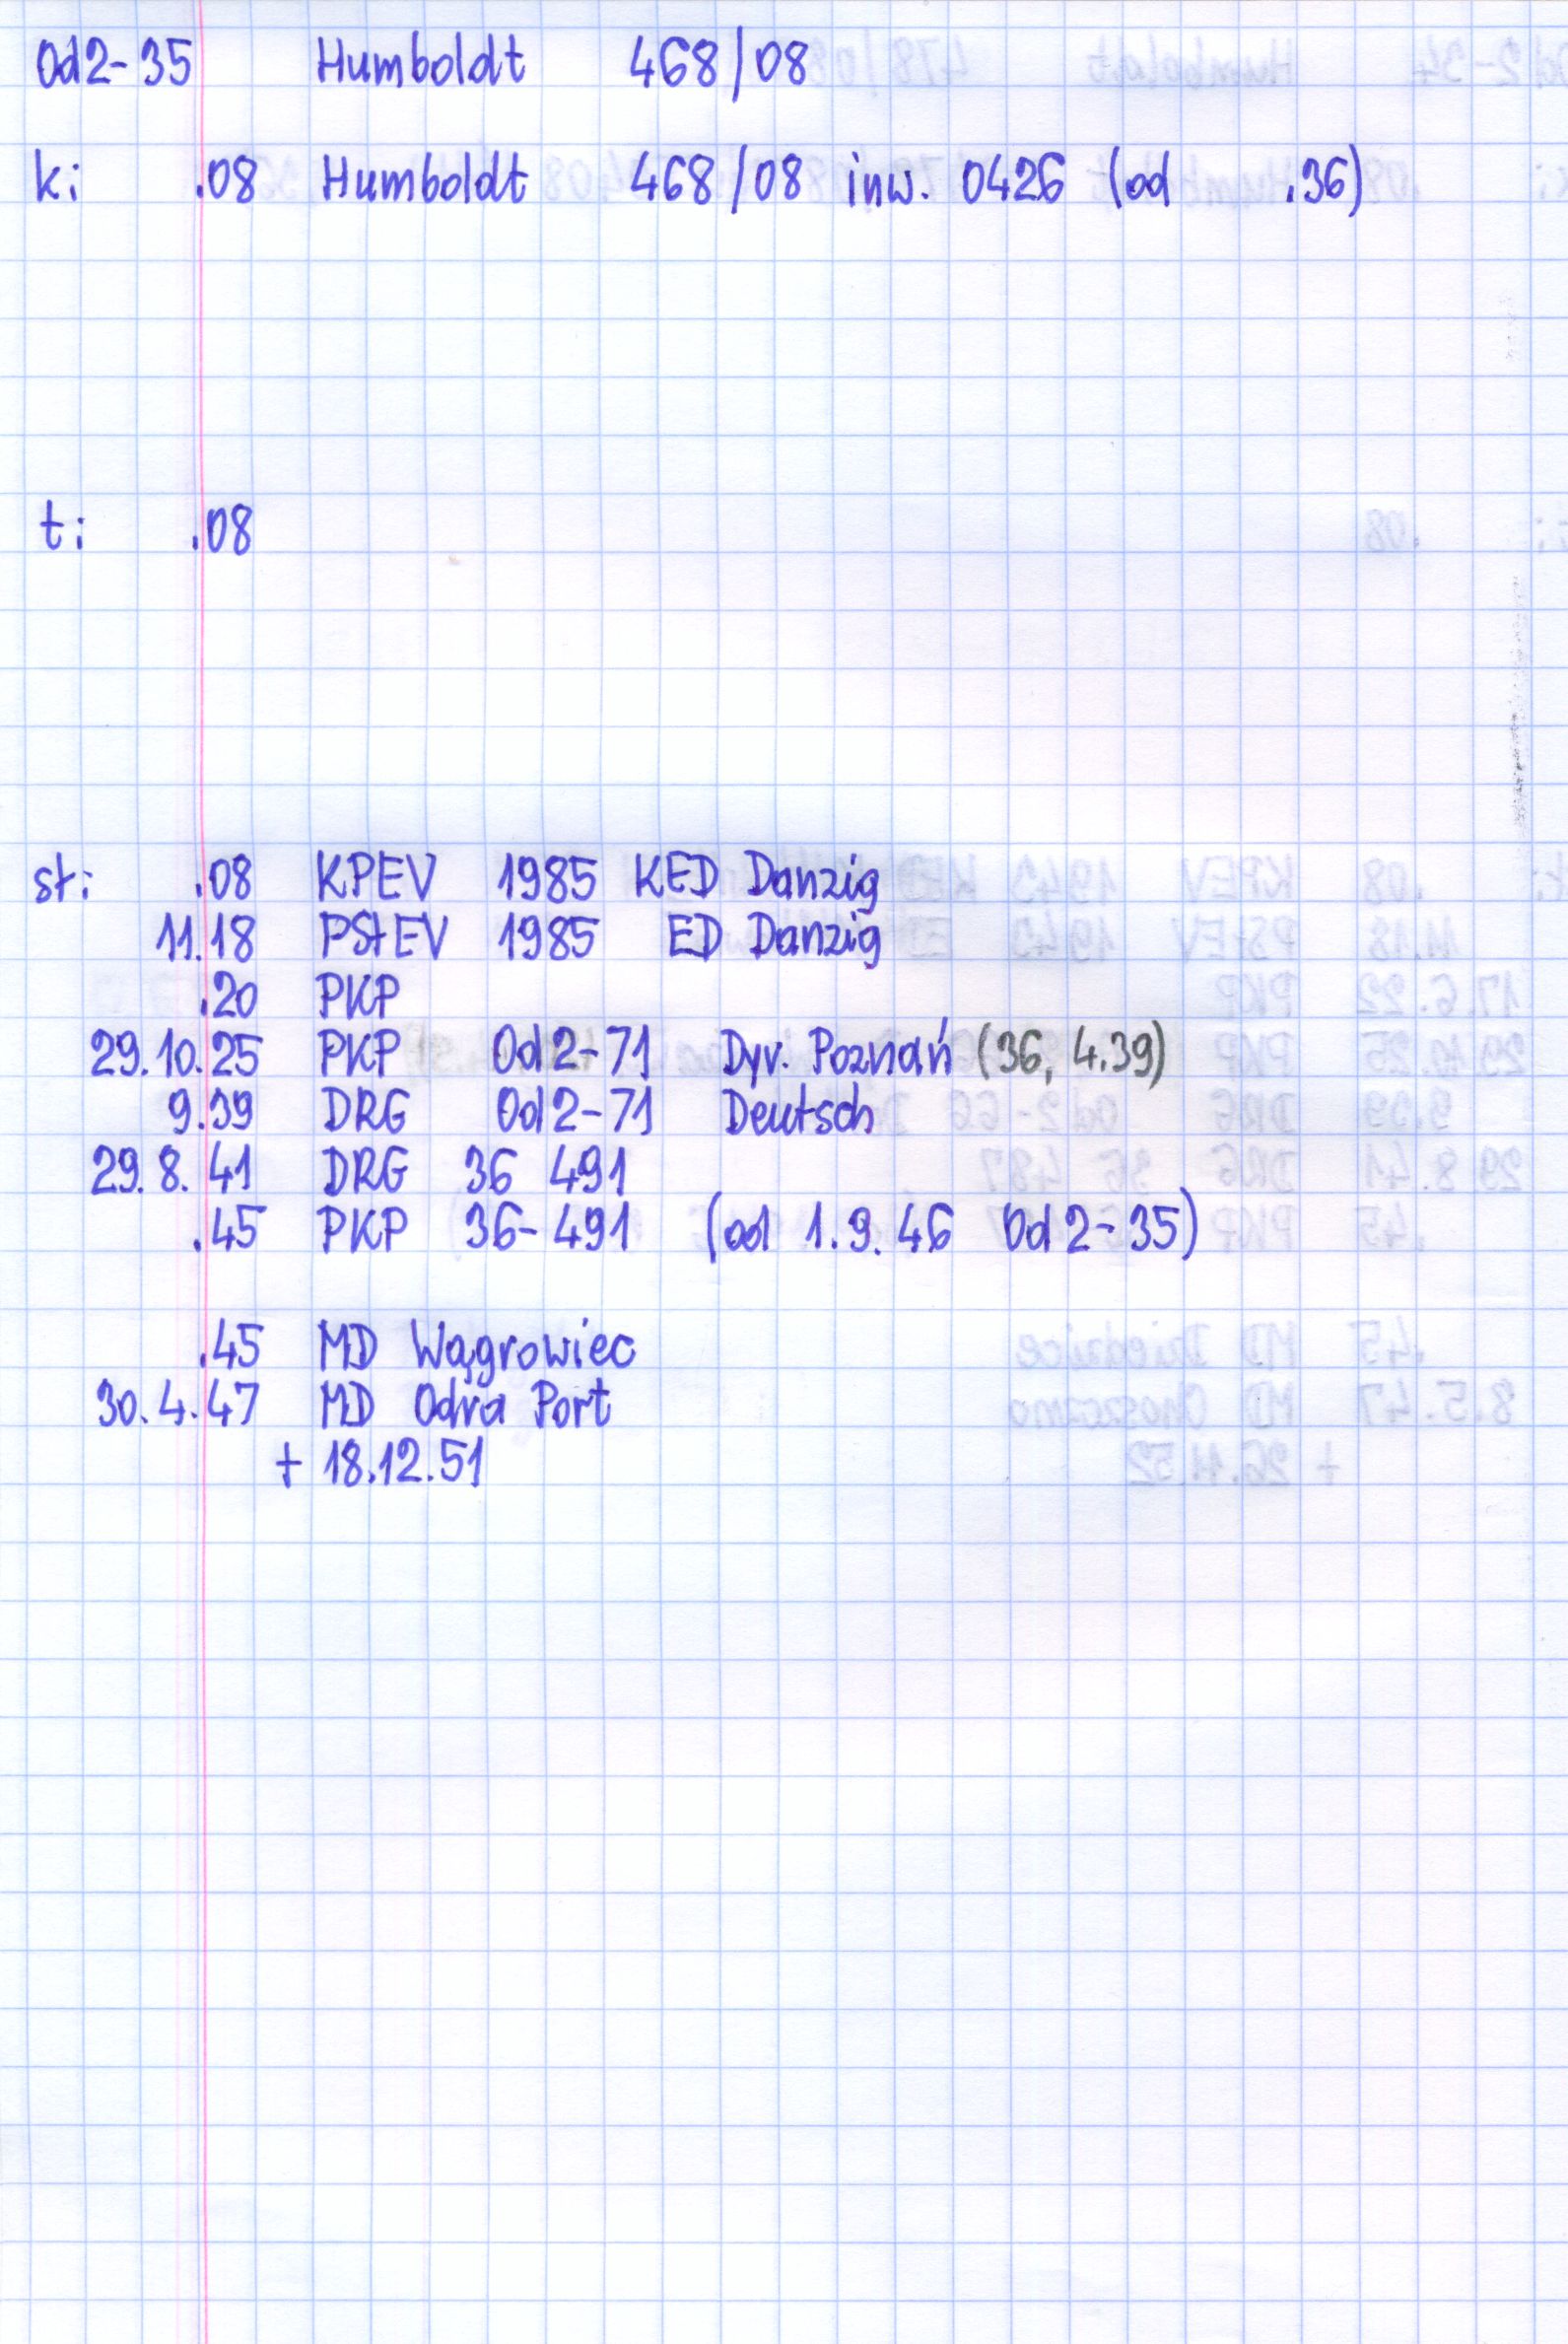 Od2-35 Humboldt 468/08
k: .08 Humboldt 468/08 inw. 0426 (od .36)
t: .08
st: .08 KPEV 1985 KED Danzig
11.18 PStEV 1985 ED Danzig
.20 PKP
29.10.25 PKP Od2-71 Dyr. Poznań (36, 4.39)
9.39 DRG Od2-71 Deutsch
29.8.41 DRG 36 491
.45 PKP 36-491 (od 1.9.46 Od2-35)
.45 MD Wągrowiec
30.4.47 MD Odra Port
+ 18.12.51